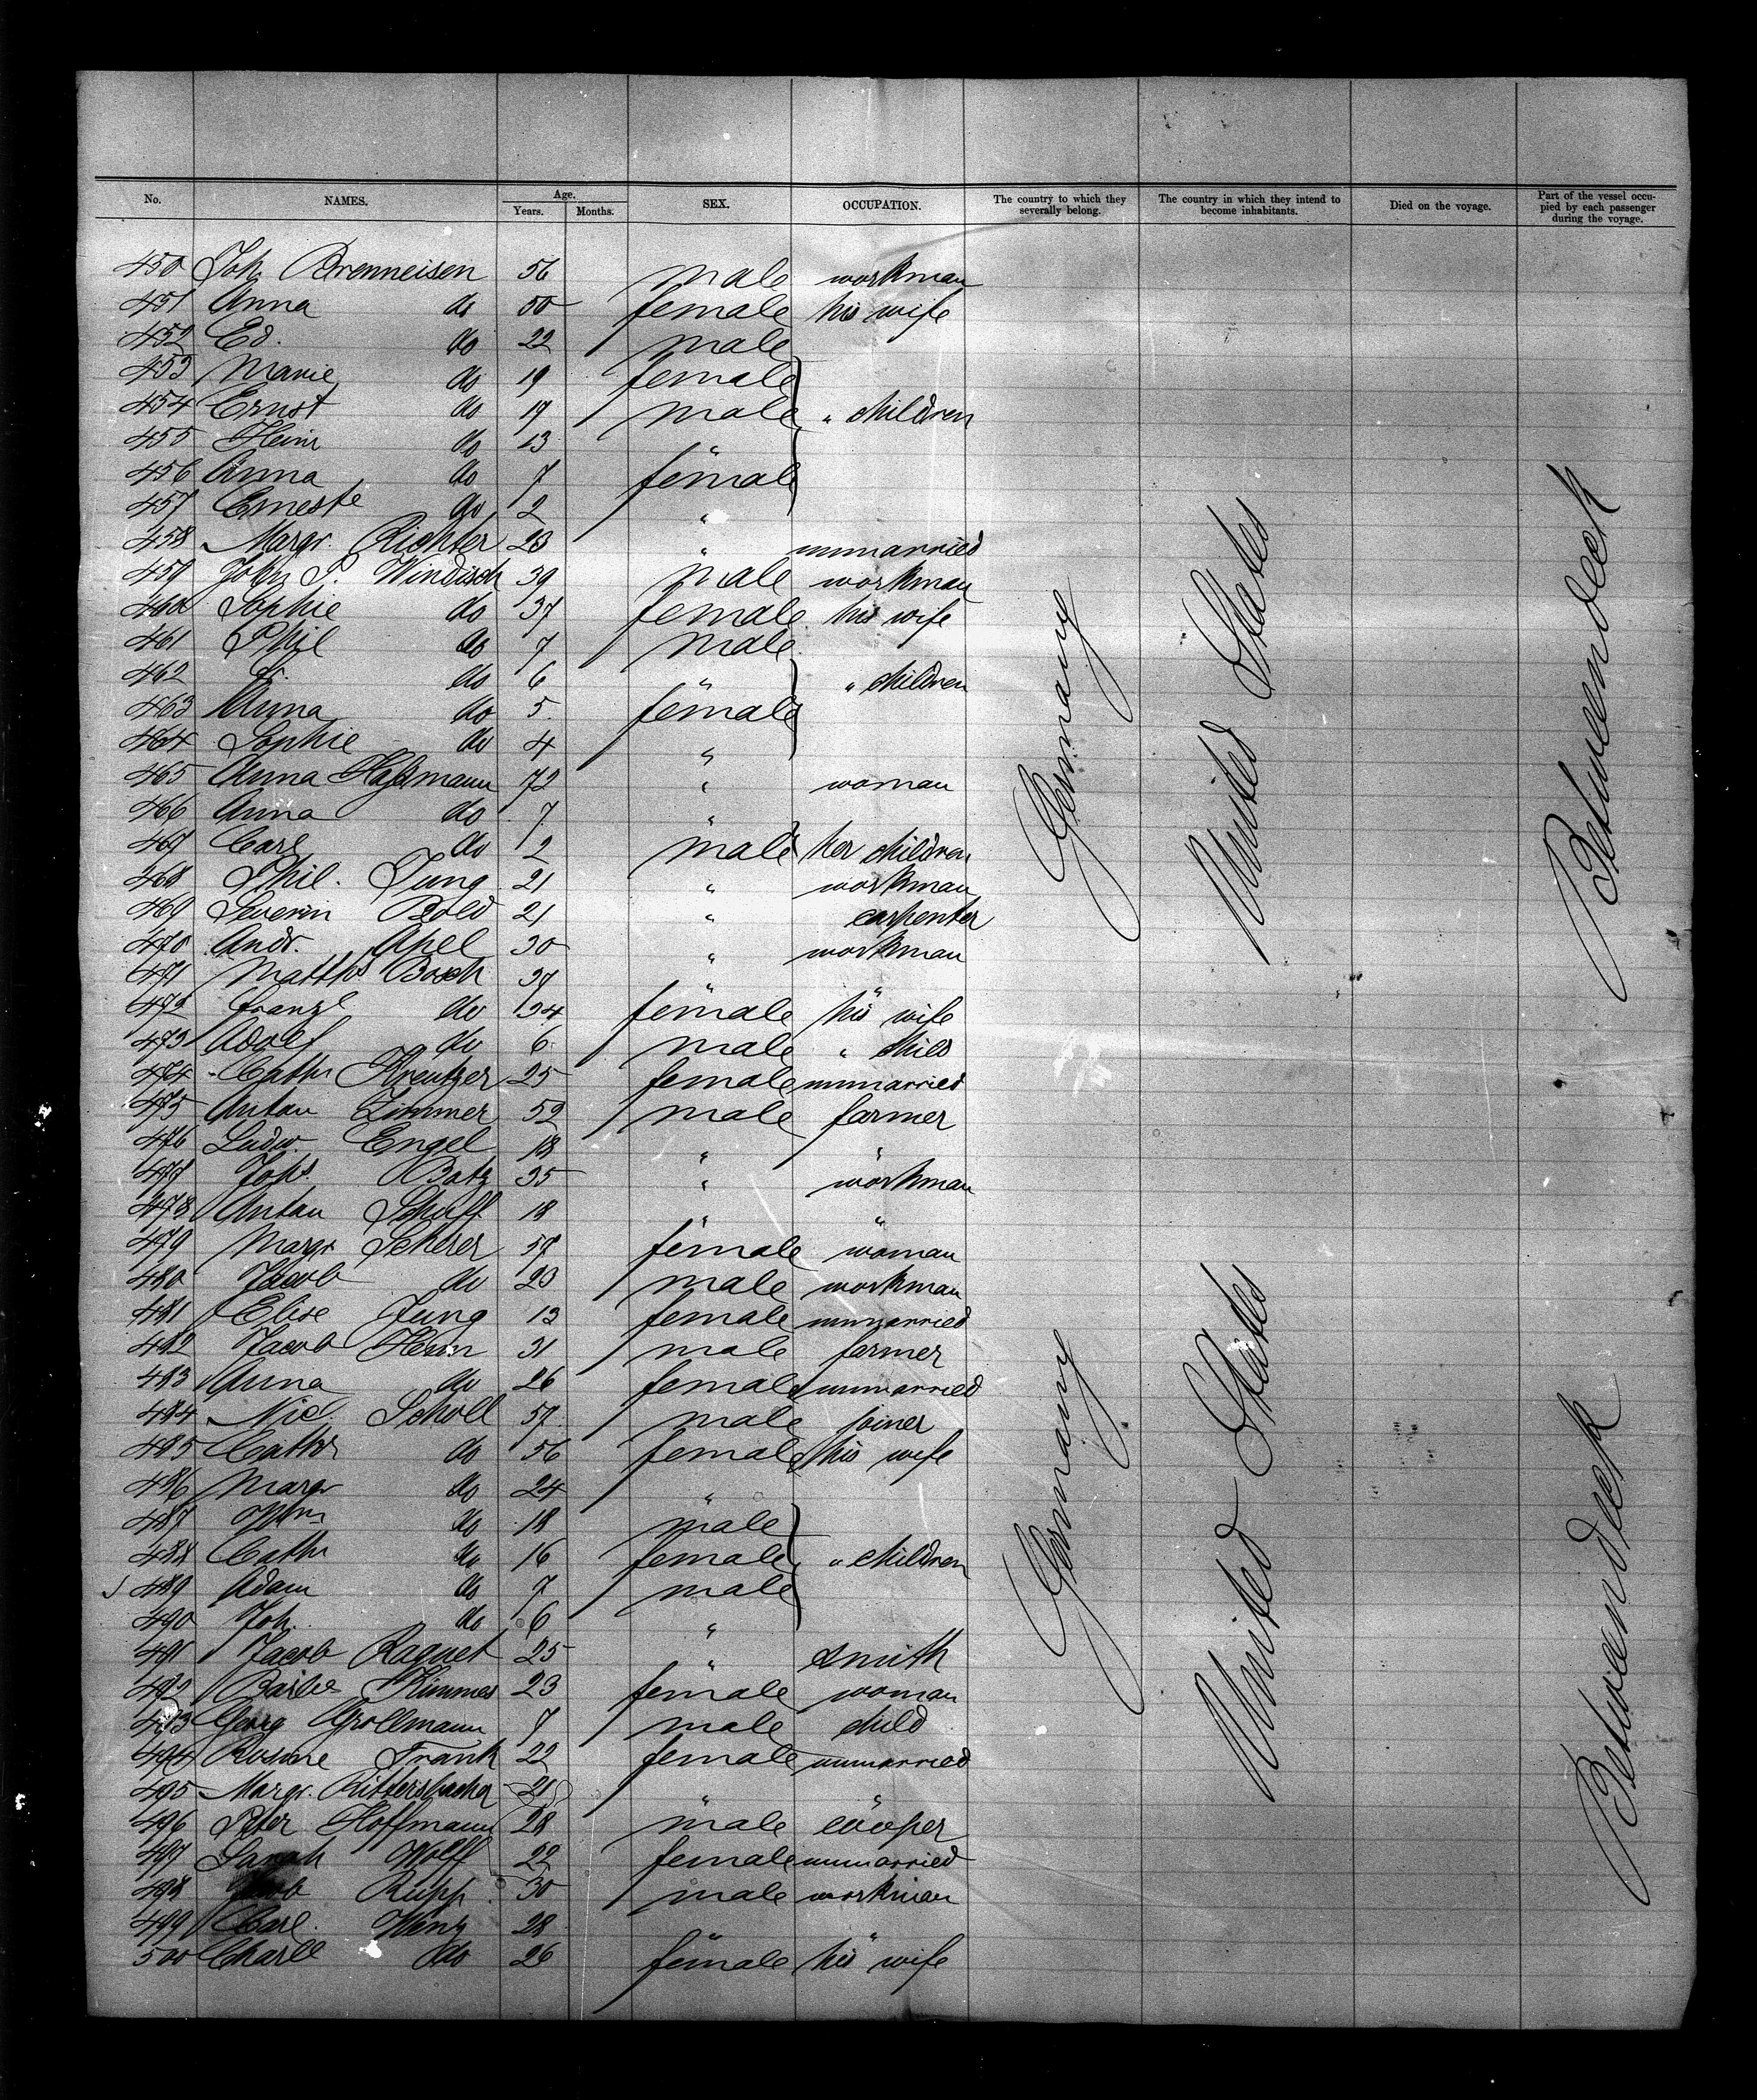 No. NAMES. Age. Years. Months. SEX. OCCUPATION. The country to which they severally belong. The country in which they intend to become inhabitants. Died on the voyage. Part of the vessel occupied by each passenger during the voyage.
450 Joh. Brenneisen 56 male workman
451 Anna do 50 female his wife
452 Ed. do 22 male
453 Marie do 19 female
454 Ernst do 19 male " children
455 Heinr do 13 "
456 Anna do 7 female
457 Erneste do 2 "
458 Margr. Richter 23 " unmarried
459 John P. Windisch 39 male workman
460 Sophie do 37 female his wife
461 Phil do 7 male
462 do 6 " " children
463 Anna do 5 female
464 Sophie do 4 "
465 Anna 72 " woman
466 Anna do 7 "
467 Carl do 2 male her children
468 Phil. Jung 21 " workman
469 Severin Bold 21 " carpenter
470 Andr. Apel 30 " workman
471 Matths 37 " "
472 Franz do 34 female his wife
473 Adolf do 6 male " child
474 Cathr Kreutzer 25 female unmarried
475 Anton Zimmer 52 male farmer
476 Ludw. Engel 18 " "
477 Johs. Batz 35 " workman
478 Anton Schuff 18 " "
479 Margr Scherer 57 female woman
480 Jacob do 23 male workman
481 Elise Jung 13 female unmarried
482 Jacob 31 male farmer
483 Anna do 26 female unmarried
484 Nicl. Scholl 57 male joiner
485 Cathr do 56 female his wife
486 Margr do 24 "
487 Wm do 18 male
488 Cathr do 16 female " children
489 Adam do 7 male
490 Joh. do 6 "
491 Jacob Raquet 25 " smith
492 Barbe Kimmes 23 female woman
493 Georg Grollmann 7 male child
494 Rosine Frank 22 female unmarried
495 Margr. Rittersbacher 21 " "
496 Peter Hoffmann 28 male cooper
497 Sarah Wolff 22 female unmarried
498 Rupp 30 male workman
499 Carl. 28 " "
500 Charll do 26 female his wife
Germany United States Betweendeck
Germany United States Betweendeck